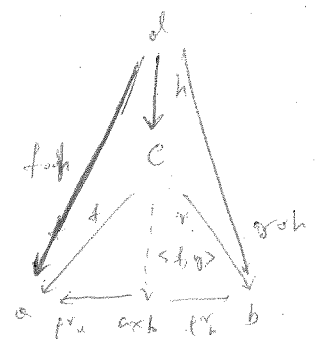 d
h
c
f∘h
f
g∘h
<f, g>
a
pr_a
a×b
pr_b
b